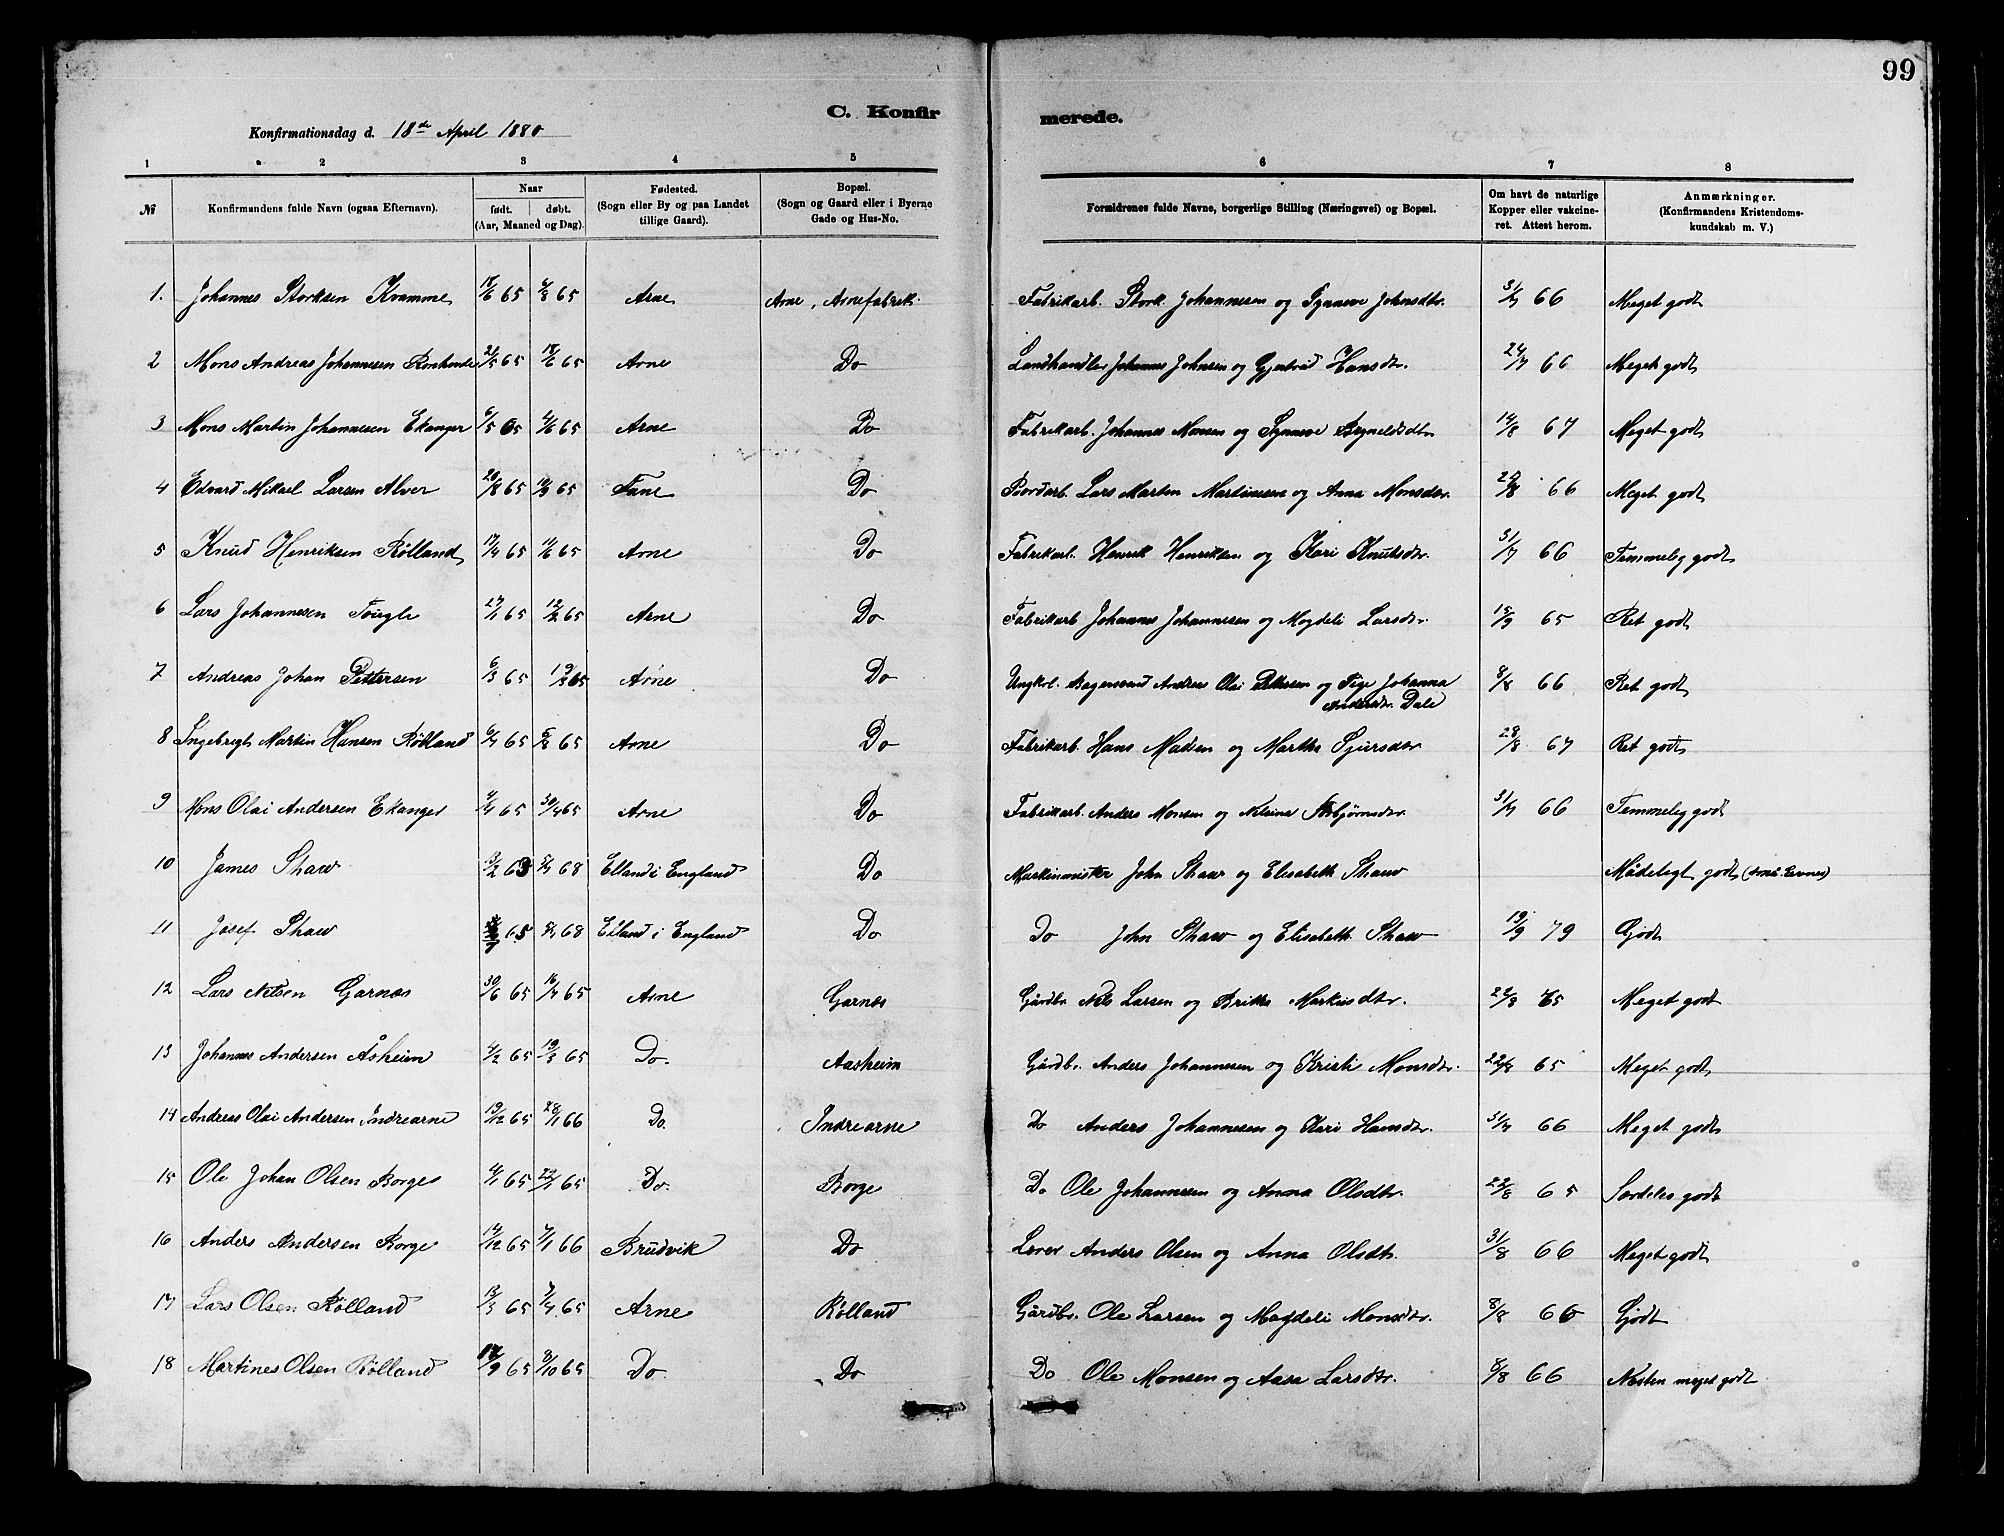 99
C. Konfirmerede.
Konfirmationsdag d. 18de April 1880
1 2 3 4 5 6 7 8
№ Konfirmandens fulde Navn (ogsaa Efternavn). Naar født. døbt. (Aar, Maaned og Dag). Fødested. (Sogn eller By og paa Landet tillige Gaard). Bopæl. (Sogn og Gaard eller i Byerne Gade og Hus-No. Forældrenes fulde Navne, borgerlige Stilling (Næringsvei) og Bopæl. Om havt de naturlige Kopper eller vakcineret. Attest herom. Anmærkninger. (Konfirmandens Kristendomskundskab m. V.)
1. Johannes Storksen Kvamme 65 65 Arne Arne, Arnefabrik. Fabrikarb. Stork Johannesen og Synneve Johnsdtr. 31/7 66 Meget godt
2 Mons Andreas Johannesen 21/5 65 18/6 65 Arne Do Landhandler Johannes Johnsen og Gjertrud Hansdtr. 24/7 66 Meget godt
3 Mons Martin Johannesen Ekanger 6/5 65 4/6 65 Arne Do Fabrikarb. Johannes Monsen og Synneve 14/8 67 Meget godt
4 Edvard Mikael Larsen Alver 20/8 65 65 Fane Do Bordarb. Lars Martin Martinesen og Anna Monsdtr. 66 Meget godt
5 Knud Henriksen Rølland 17/4 65 65 Arne Do Fabrikarb. Henrik Henriksen og Kari Knutsdtr. 31/7 66 Temmeleg godt
6 Lars Johannesen Tungle 27/1 65 12/2 65 Arne Do Fabrikarb Johannes Johannesen og Magdeli Larsdtr. 15/9 65 Ret godt
7 Andreas Johan Pettersen 6/3 65 19/3 65 Arne Do Ungkrl. Bagersvend Andreas Olai Pettersen og Pige Johanna Andersdtr. Dale 8/8 66 Ret godt
8 Ingebrigt Martin Hansen Rødland 6/7 65 6/8 65 Arne Do Fabrikarb Hans Madsen og Marthe Sjursdtr 28/8 67 Ret godt
9 Mons Olai Andersen Ekanger 65 30/4 65 Arne Do Fabrikarb. Anders Monsen og Nelsine 31/7 66 Temmeleg godt
10 James Shaw 3/2 63 68 Elland i England Do Maskinmister John Shaw og Elisabeth Shaw Mådelegt godt (små Evnes)
11 Josef Shaw 65 68 Elland i England Do Do John Shaw og Elisabeth Shaw 19/9 79 Godt
12 Lars Nelsen Garnæs 30/6 65 16/7 65 Arne Garnæs Gårdbr. Nels Larsen og Britha Markusdtr. 22/8 65 Meget godt
13 Johannes Andersen Åsheim 4/2 65 19/3 65 Do. Aasheim Gårdbr. Anders Johannesen og Kristi Monsdtr. 22/8 65 Meget godt
14 Andreas Olai Andersen Indrearne 19/12 65 28/1 66 Do. Indrearne Do Anders Johannesen og Kari Hansdtr. 31/7 66 Meget godt
15 Ole Johan Olsen Borge 4/1 65 22/1 65 Do. Borge Do Ole Johannesen og Anna Olsdtr. 22/8 65 Særdeles godt
16 Anders Andersen Borge 14/12 65 7/1 66 Brudvik Do Lærer Anders Olsen og Anna Olsdtr. 31/8 66 Meget godt
17 Lars Olsen Rølland 12/3 65 7/4 65 Arne Rølland Gårdbr. Ole Larsen og Magdeli Monsdtr. 8/8 66 Godt
18 Martines Olsen Rølland 17/9 65 8/10 65 Do Do Do Ole Monsen og Aasa Larsdtr. 8/8 66 Næsten meget godt